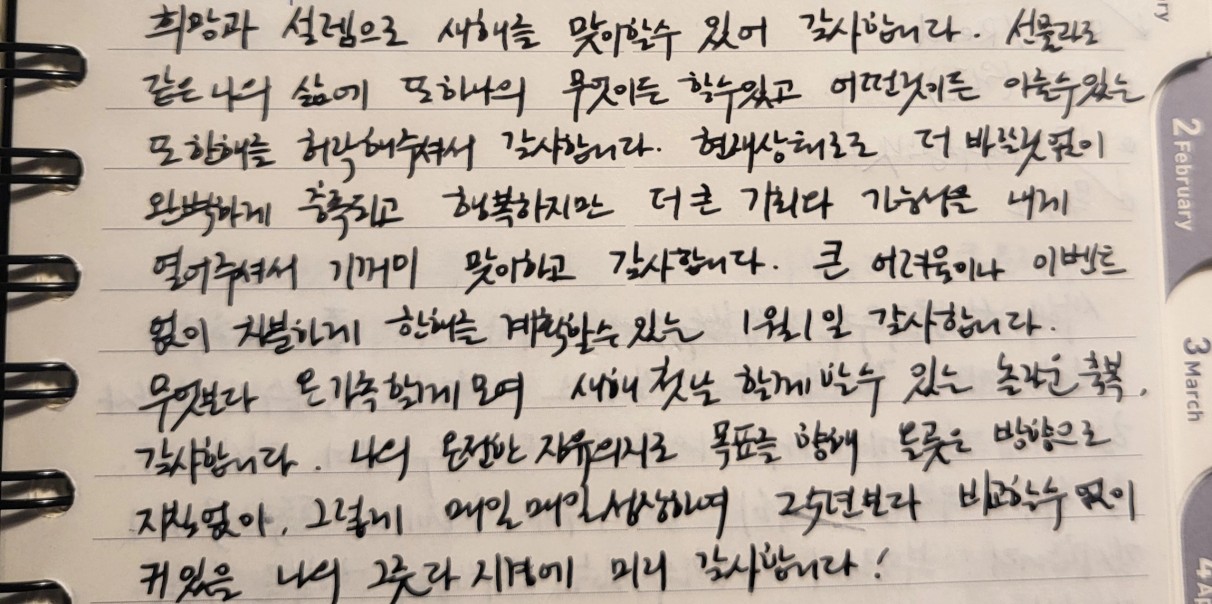 희망과 설렘으로 새해를 맞이할수 있어 감사합니다. 선물과도
같은 나의 삶에 또하나의 무엇이든 할수있고 어떤것이든 이룰수있는
또 한해를 허락해주셔서 감사합니다. 현재상태로도 더 바랄것 없이
완벽하게 충족되고 행복하지만 더 큰 기회와 가능성을 내게
열어주셔서 기꺼이 맞이하고 감사합니다. 큰 어려움이나 이벤트
없이 차분하게 한해를 계획할수 있는 1월 1일 감사합니다.
무엇보다 온가족 함께 모여 새해 첫날 함께 할수 있는 놀라운 축복,
감사합니다. 나의 온전한 자유의지로 목표를 향해 올곧은 방향으로
지침없이, 그렇게 매일 매일 성장하며 25년보다 비교할수 없이
커있을 나의 그릇과 지경에 미리 감사합니다!
2 February
3 March